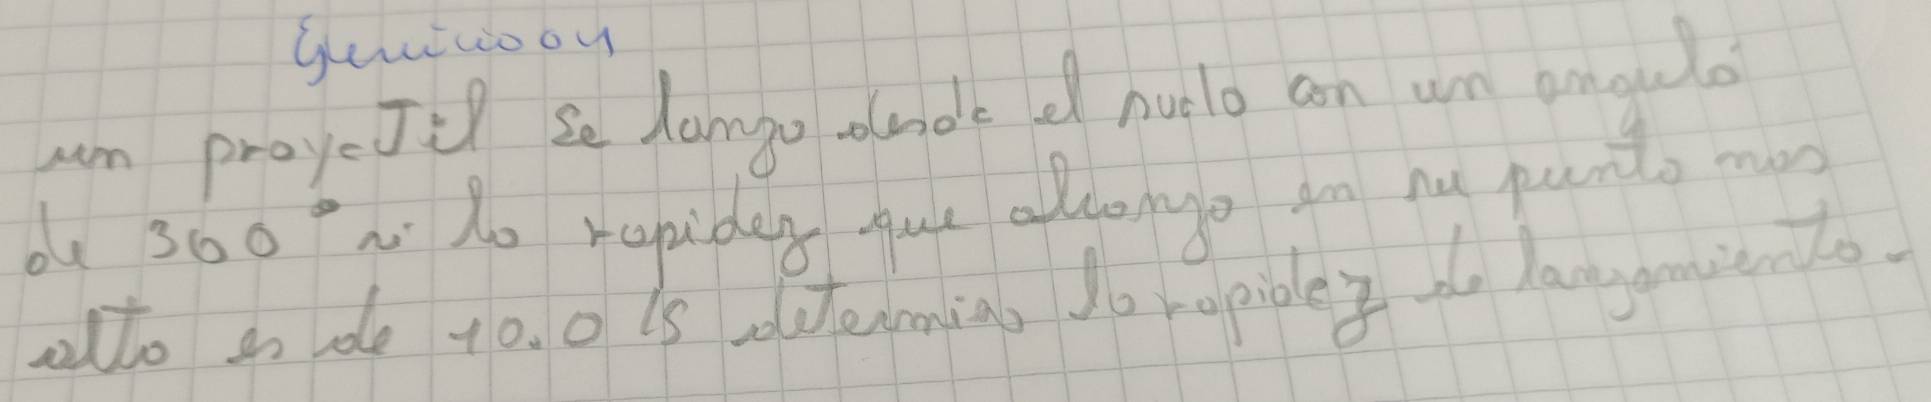 un proyectil se lanza desde el suelo con un angulo
de 300° si la rapidez que alcanza en su punto mas
alto es de 10.0 /s determina la rapidez de lanzamiento.